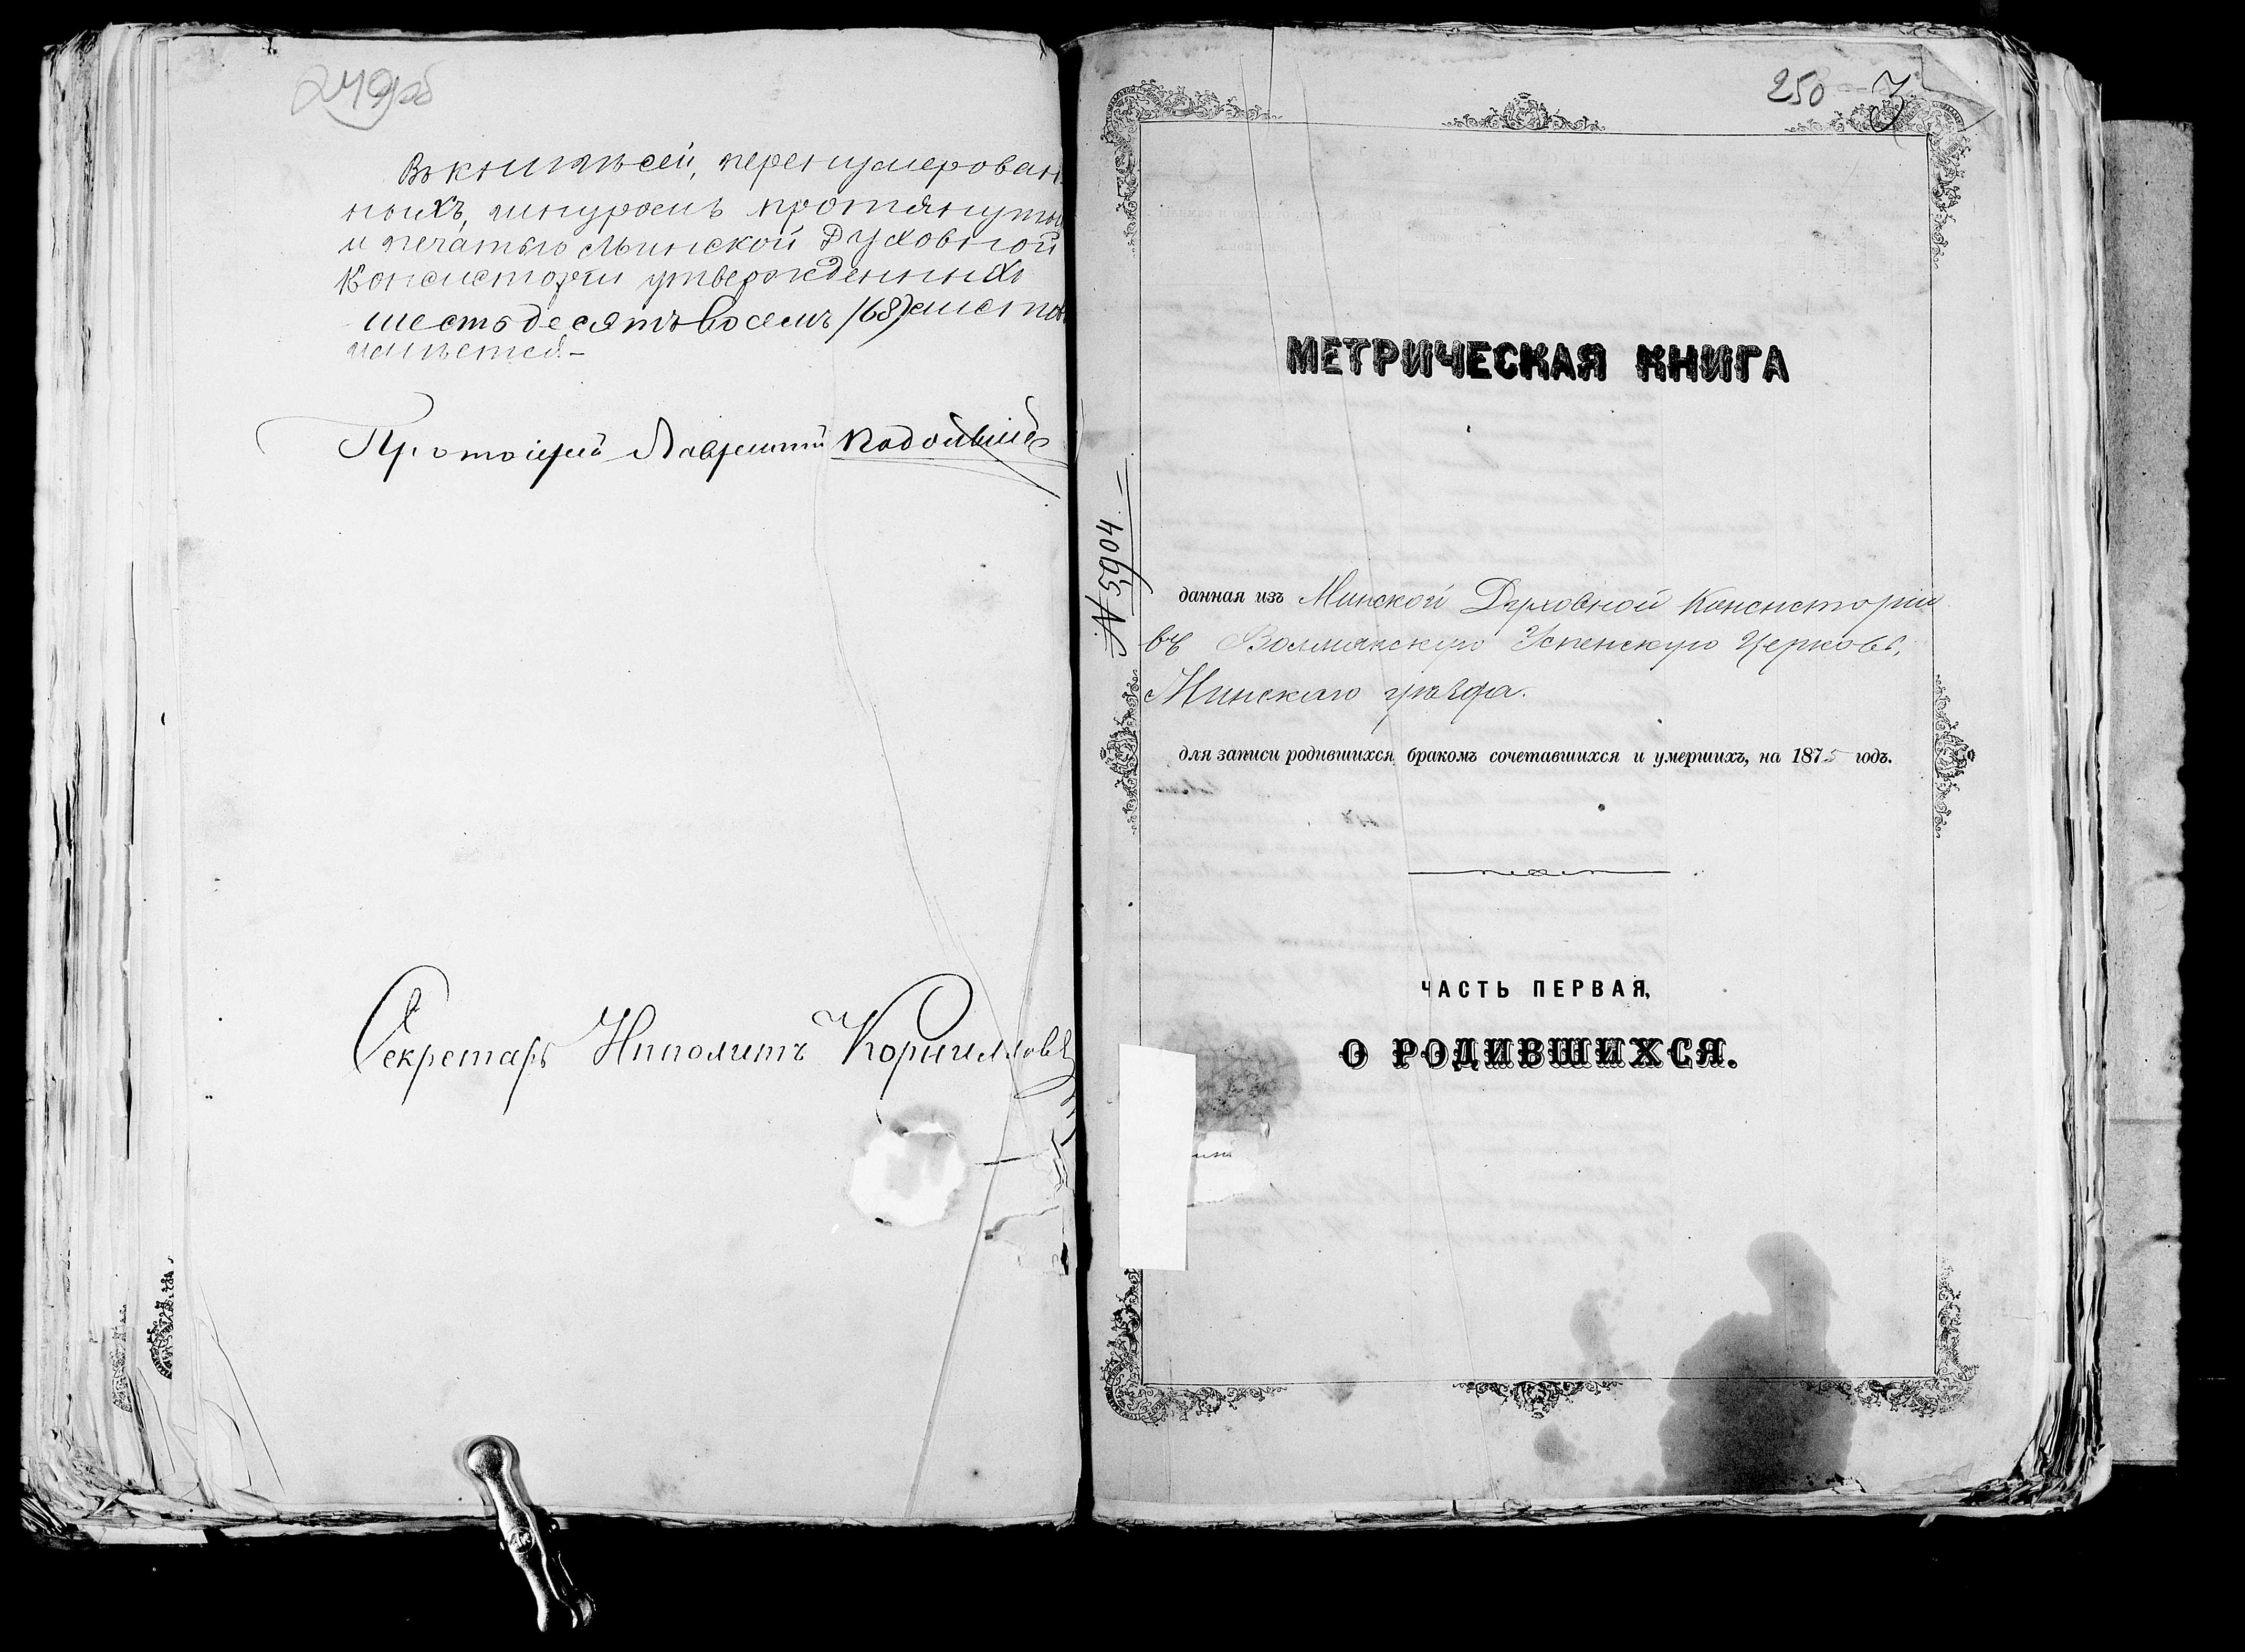 249об
Въ книгѣ сей, перенумерован
ныхъ, шнуромъ протянуты
и печатью Минской Духовной
Консисторіи утвержденныхъ
шестьдесятъ восемь /68/ листов
имѣется.-
Протоіерей Лаврентій
Секретарь Ипполитъ
250 3
МЕТРИЧЕСКАЯ КНИГА
№ 5904.
данная изъ Минской Духовной Консисторіи
въ Волмянскую Успенскую Церковь,
Минскаго уѣзда.
для записи родившихся, бракомъ сочетавшихся и умершихъ, на 1875 годъ.
ЧАСТЬ ПЕРВАЯ,
О РОДИВШИХСЯ.